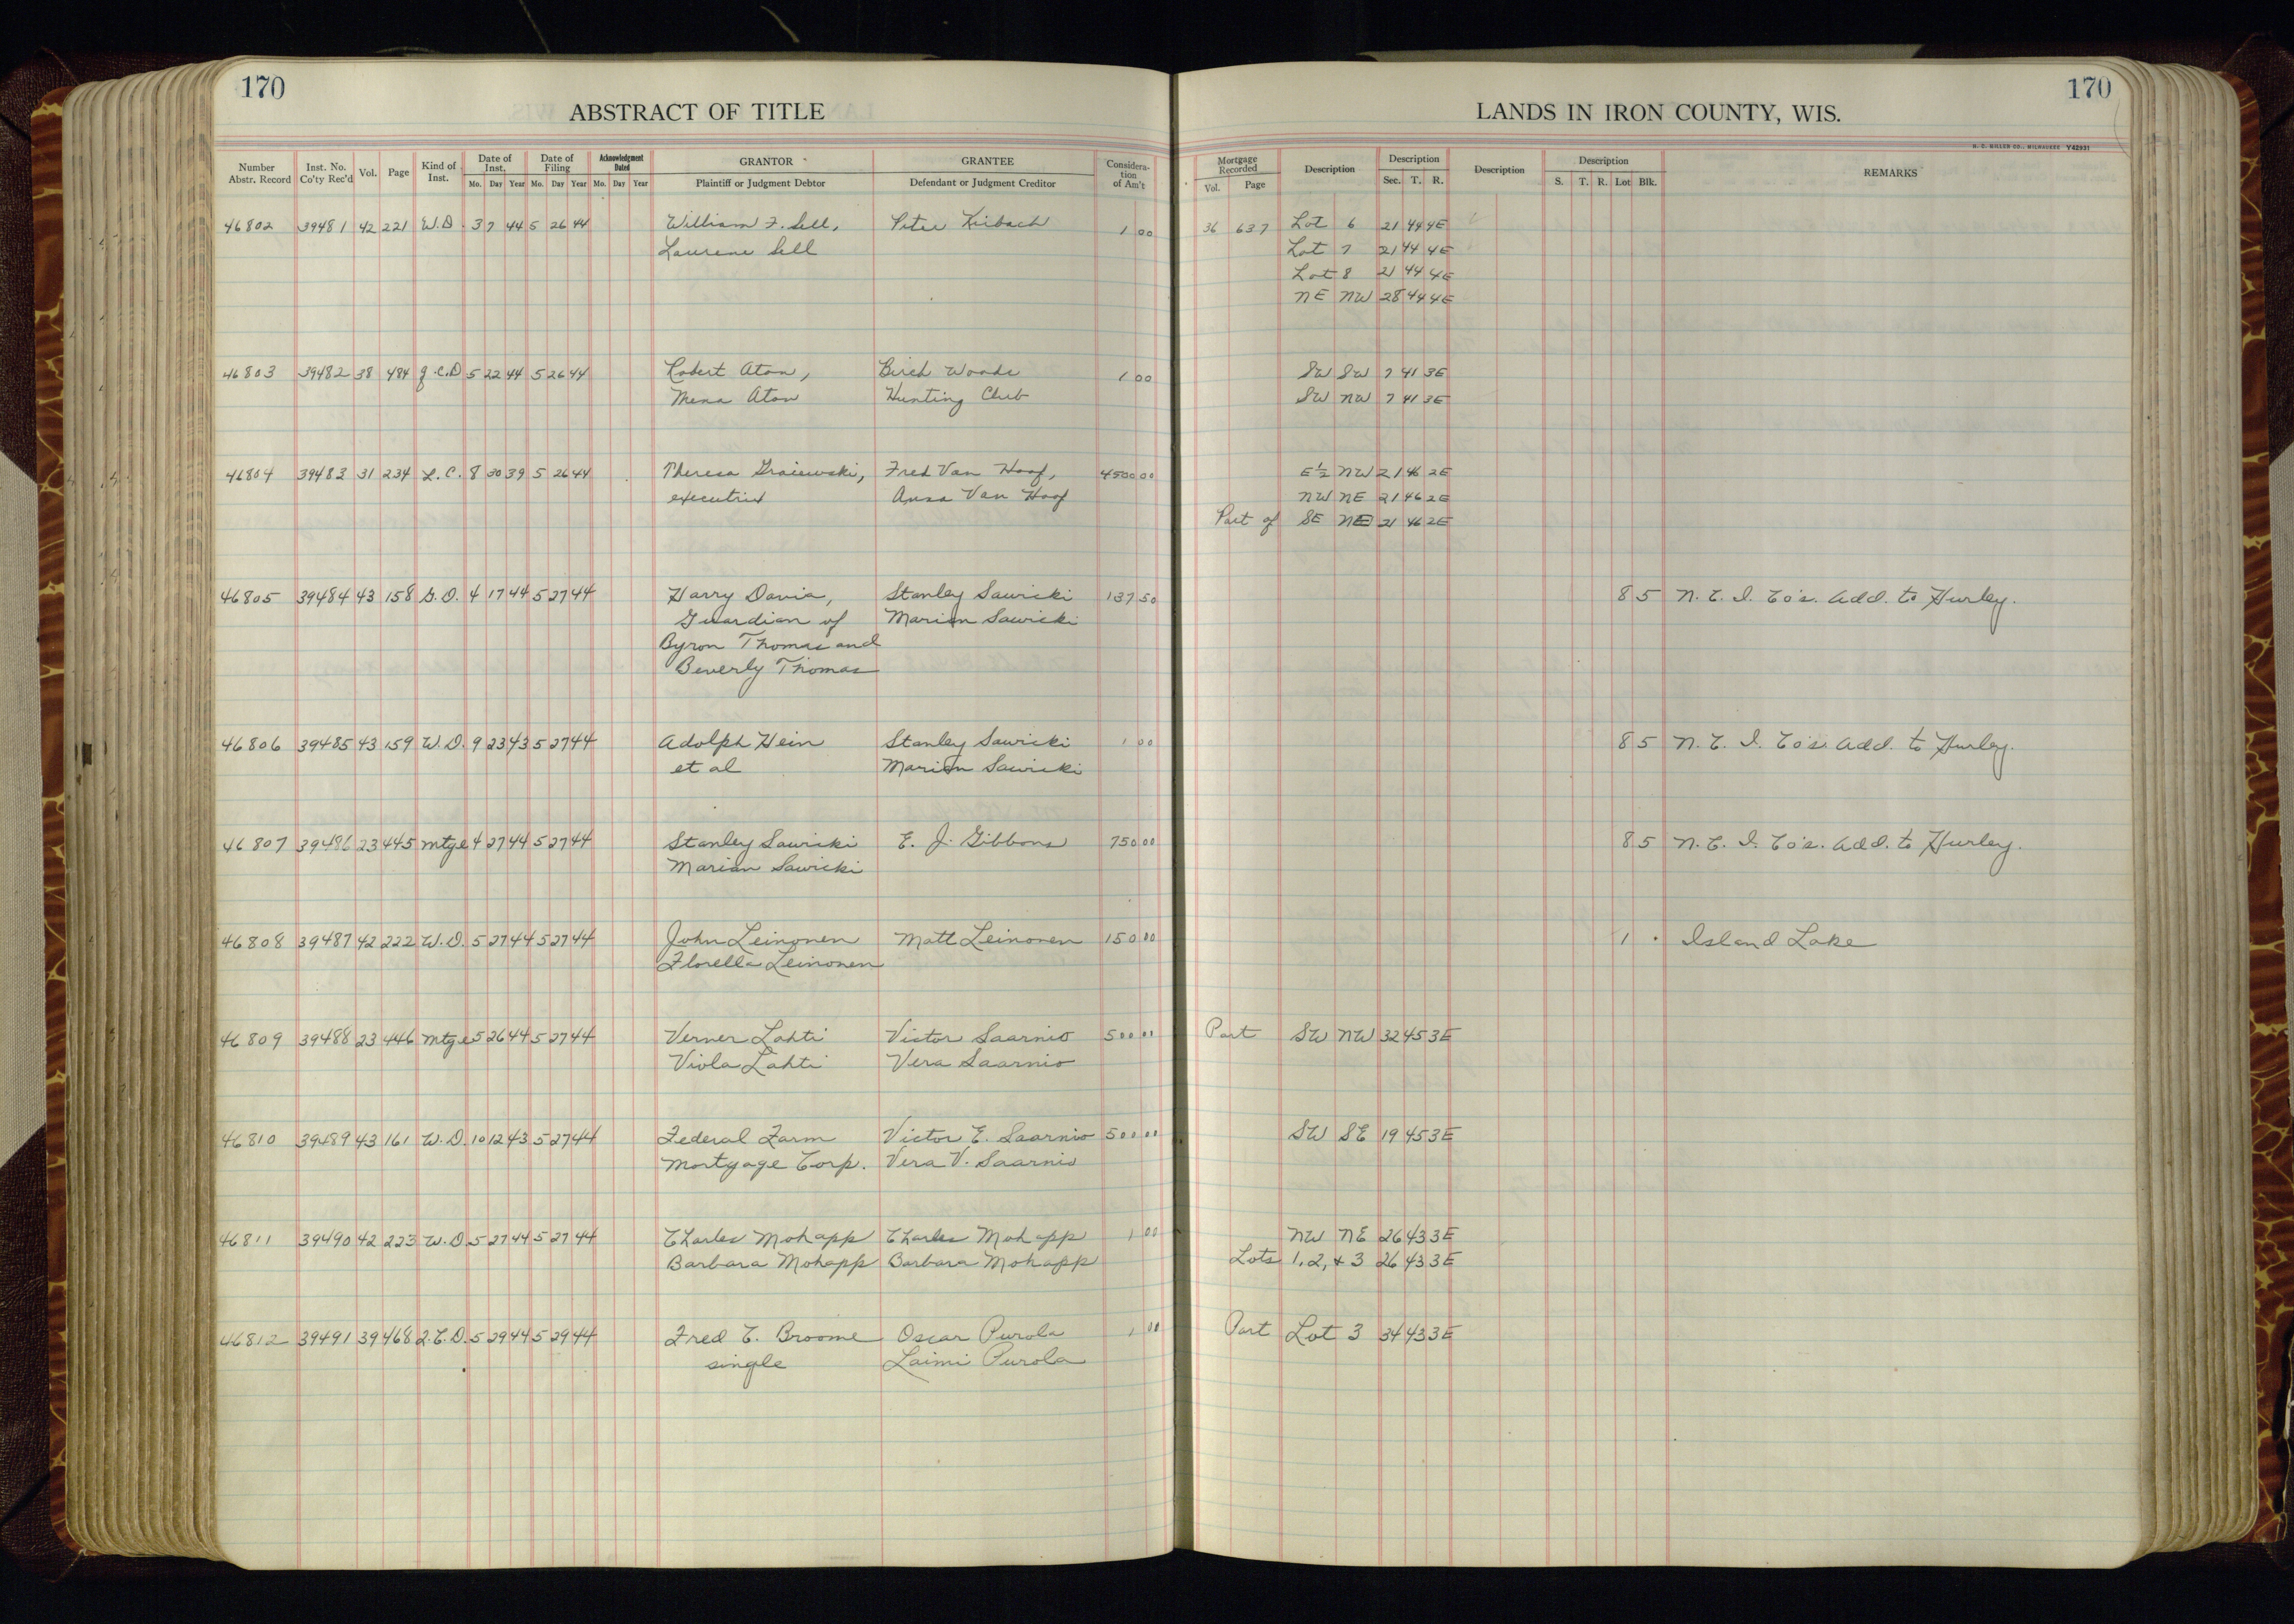 170
ABSTRACT OF TITLE
Number Abstr. Record Inst. No. Co'ty Rec'd Vol. Page Kind of Inst. Date of Inst. Mo. Day Year Date of Filing Mo. Day Year Acknowledgment Dated Mo. Day Year GRANTOR Plaintiff or Judgment Debtor GRANTEE Defendant or Judgment Creditor Considera- tion of Am't
46802 39481 42 221 W.D. 3 7 44 5 26 44 William F. Sell, Peter Kirbach 1 00
Laurene Sell
46803 39482 38 484 Q.C.D 5 22 44 5 26 44 Robert Aton, Birch Woods 1 00
Mena Aton Hunting Club
46804 39483 31 234 L.C. 8 30 39 5 26 44 Theresa Graiewski, Fred Van Hoof, 4500 00
executrix Anna Van Hoof
46805 39484 43 158 G.D. 4 17 44 5 27 44 Harry Davia, Stanley Sawicki 137 50
Guardian of Marion Sawicki
Byron Thomas and
Beverly Thomas
46806 39485 43 159 W.D. 9 23 43 5 27 44 Adolph Hein Stanley Sawicki 1 00
et al Marion Sawicki
46807 39486 23 445 Mtge 4 27 44 5 27 44 Stanley Sawicki E. J. Gibbons 750 00
Marian Sawicki
46808 39487 42 222 W.D. 5 27 44 5 27 44 John Leinonen Matt Leinonen 150 00
Florella Leinonen
46809 39488 23 446 Mtge 5 26 44 5 27 44 Verner Lahti Victor Saarnio 500 00
Viola Lahti Vera Saarnio
46810 39489 43 161 W.D. 10 12 43 5 27 44 Federal Farm Victor E. Saarnio 500 00
Mortgage Corp. Vera V. Saarnio
46811 39490 42 223 W.D. 5 27 44 5 27 44 Charles Mohapp Charles Mohapp 1 00
Barbara Mohapp Barbara Mohapp
46812 39491 39 468 Q.C.D. 5 29 44 5 29 44 Fred C. Broome Oscar Purola 1 00
single Laimi Purola
170
LANDS IN IRON COUNTY, WIS.
H. C. MILLER CO., MILWAUKEE Y42931
Mortgage Recorded Vol. Page Description Description Sec. T. R. Description Description S. T. R. Lot Blk. REMARKS
36 637 Lot 6 21 44 4E
Lot 7 21 44 4E
Lot 8 21 44 4E
NE NW 28 44 4E
SW SW 7 41 3E
SW NW 7 41 3E
E½ NW 21 46 2E
NW NE 21 46 2E
Part of SE NE 21 46 2E
8 5 N. C. I. Co's. Add. to Hurley.
8 5 N. C. I. Co's. Add. to Hurley.
8 5 N. C. I. Co's. Add. to Hurley.
1 Island Lake
Part SW NW 32 45 3E
SW SE 19 45 3E
NW NE 26 43 3E
Lots 1, 2, & 3 26 43 3E
Part Lot 3 34 43 3E